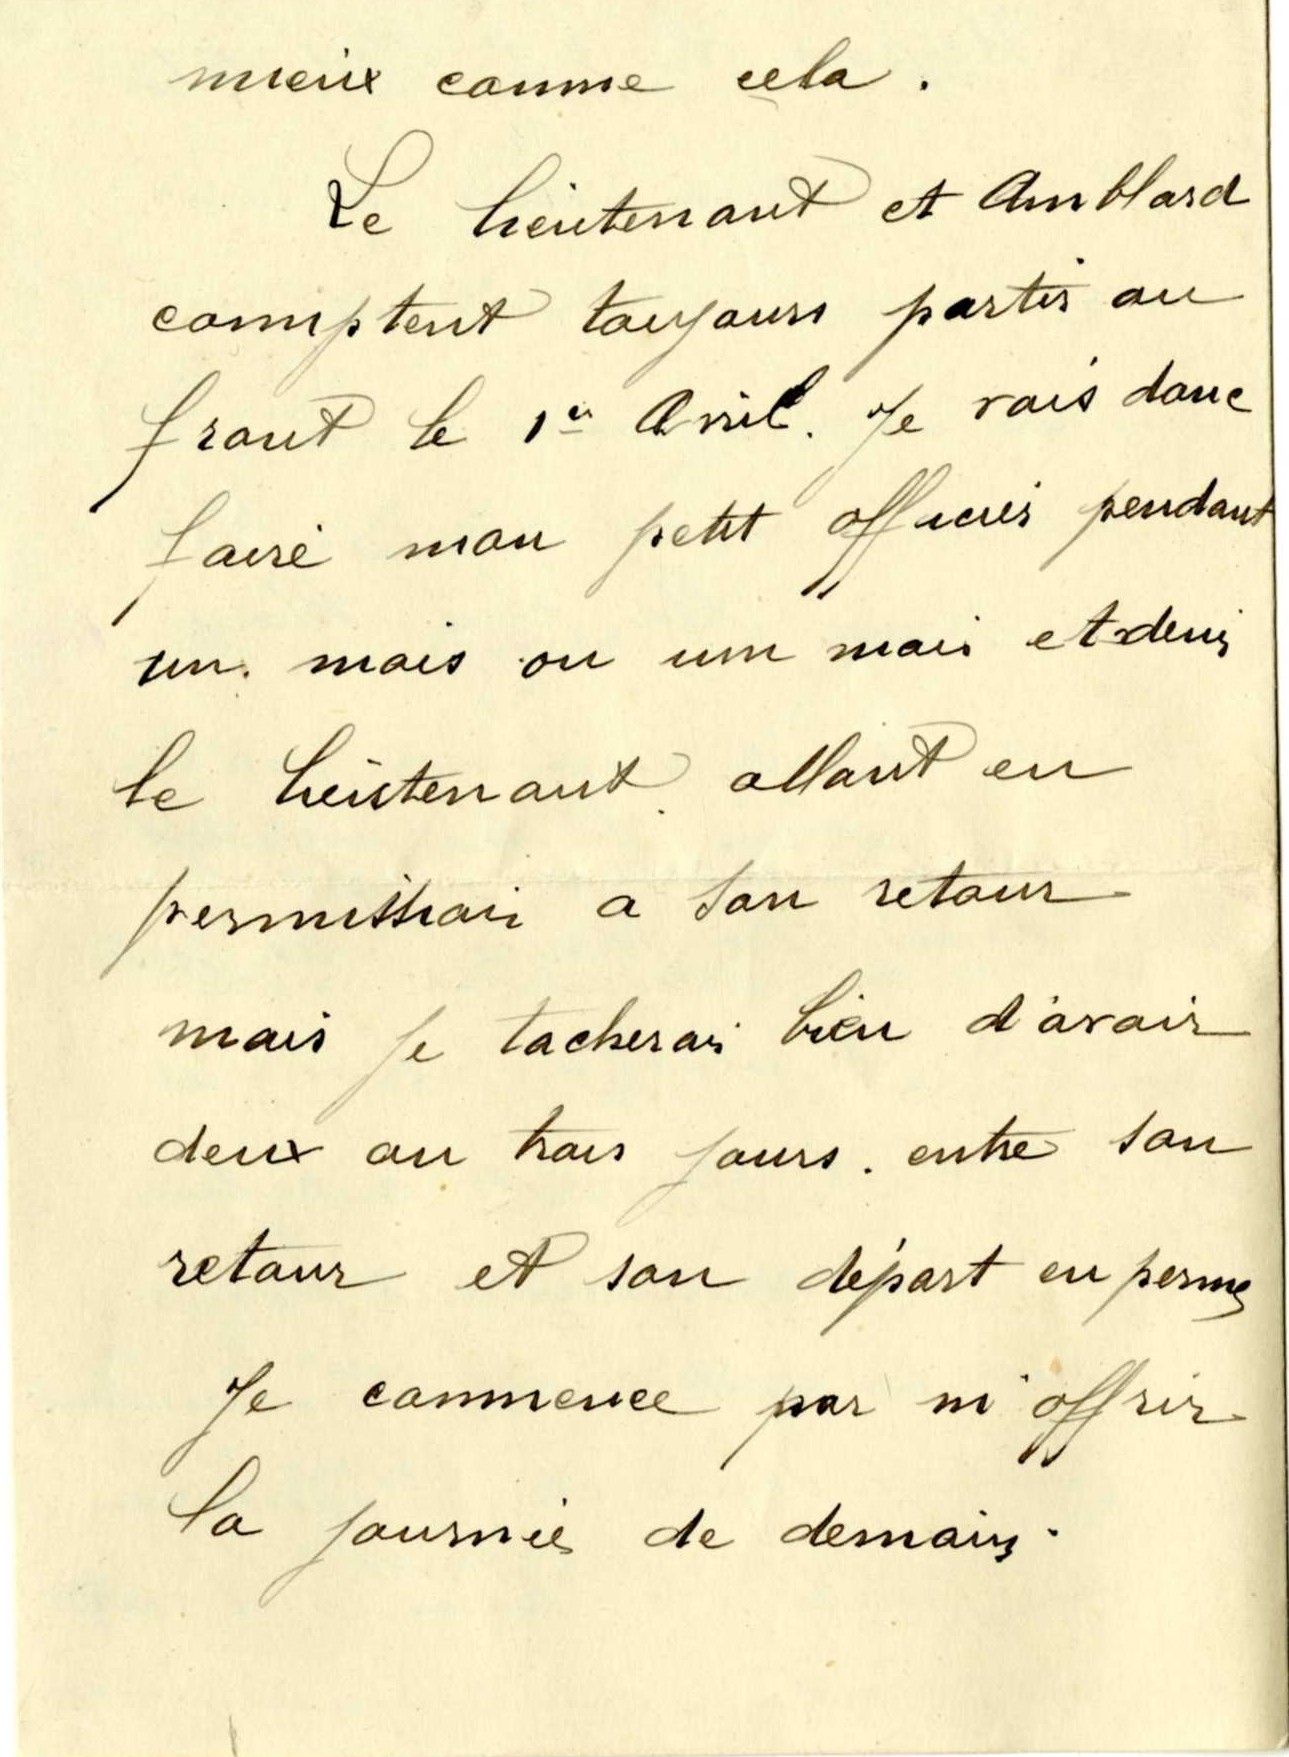 mieux comme cela.
Le lieutenant et Amblard
comptent toujours partir au
front le 1er Avril. Je vais donc
faire mon petit officier pendant
un mois ou un mois et demi
le lieutenant allant en
permission a son retour
mais je tacherai bien d'avoir
deux ou trois jours. entre son
retour et son départ en perme
Je commence par m'offrir
la journée de demain.